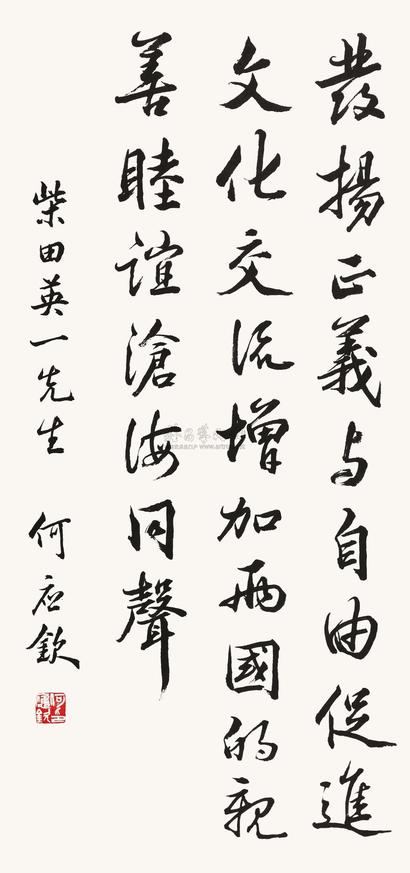 發揚正義与自由促進
文化交流增加兩國的親
善睦誼滄海同聲
柴田英一先生
何应欽